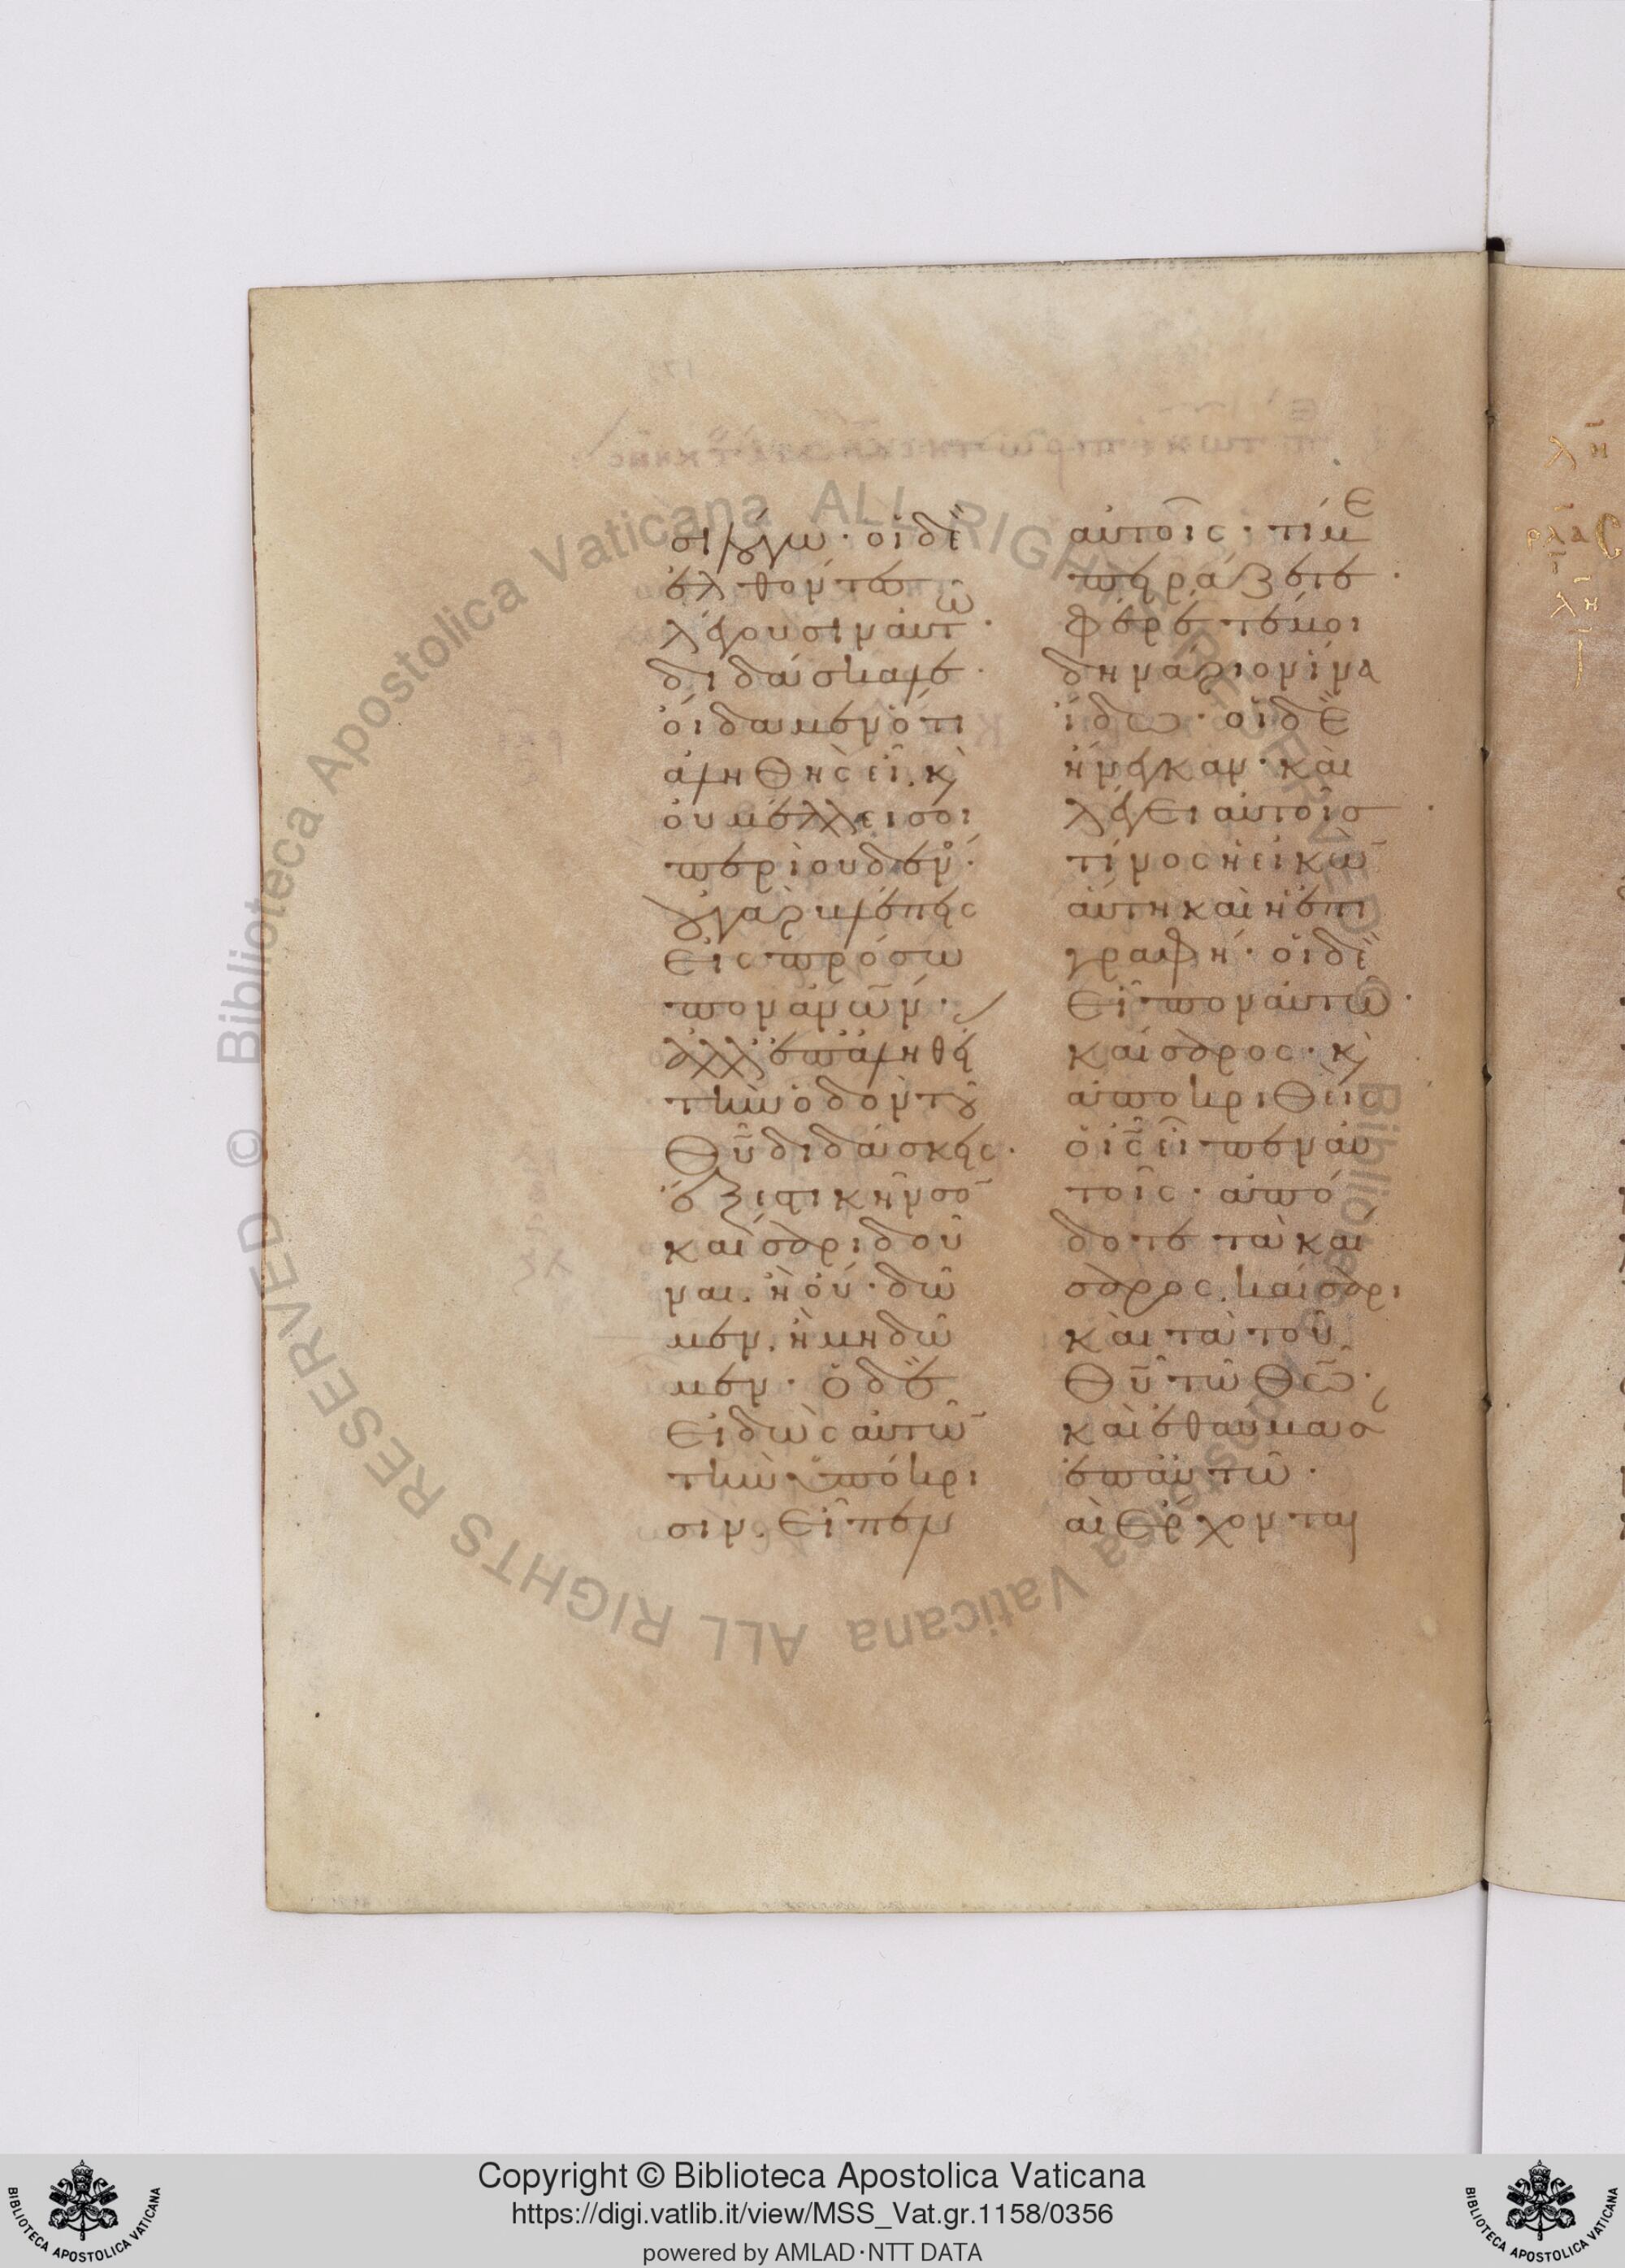 σι λόγω· οἱ δὲ
ἐλθόντες
λέγουσιν αὐτῶ·
διδάσκαλε·
οἴδαμεν ὅτι
ἀληθὴς εἶ. κ̀
οὐ μέλλει σοι
περὶ οὐδεν·
οὐ γὰρ βλέπεις
εἰς πρόσω
πον ἀν̅ω̅ν·
ἀλλ' ἐπ' ἀληθεί
τὴν ὁδὸν τοῦ
θ̅υ̅ διδάσκεις·
ἔξεστι κῆνσο̅
καίσαρι δοῦ
ναι. ἢ οὔ· δῶ
μεν. ἢ μὴ δῶ
μεν· ὁ δὲ
εἰδὼς αὐτῶ̅
τὴν ὑπόκρι
σιν. εἶπεν
αὐτοῖς· τί με
πειράζετε·
φέρετέ μοι
δηνάριον ἵνα
ἴδω· οἱ δὲ
ἤνεγκαν· καὶ
λέγει αὐτοῖς·
τίνος ἡ εἰκὼ̅
αὕτη καὶ ἡ ἐπι
γραφή· οἱ δὲ
εἶπον αὐτῶ·
καίσαρος· κ̀
ἀποκριθεὶς
ὁ ι̅ς̅ εἶπεν αὐ
τοῖς· ἀπό
δοτε τὰ καί
σαρος. καίσαρι
καὶ τὰ τοῦ
θ̅υ̅ τῶ θ̅ω̅·
καὶ ἐθαύμασ
ἐπ' αὐτῶ·
αὶ ἔρχονται
Copyright © Biblioteca Apostolica Vaticana
https://digi.vatlib.it/view/MSS_Vat.gr.1158/0356
powered by AMLAD·NTT DATA
BIBLIOTECA APOSTOLICA VATICANA
BIBLIOTECA APOSTOLICA VATICANA
© Biblioteca Apostolica Vaticana ALL RIGHTS RESERVED © Biblioteca Apostolica Vaticana ALL RIGHTS RESERVED